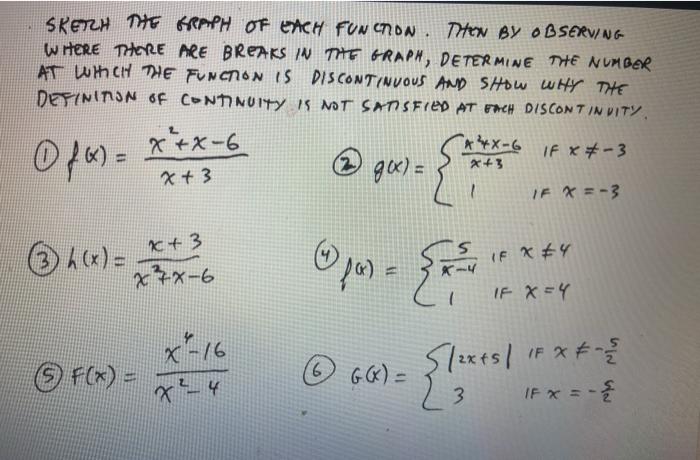 SKETCH THE GRAPH OF EACH FUNCTION. THEN BY OBSERVING
WHERE THERE ARE BREAKS IN THE GRAPH, DETERMINE THE NUMBER
AT WHICH THE FUNCTION IS DISCONTINUOUS AND SHOW WHY THE
DEFINITION OF CONTINUITY IS NOT SATISFIED AT EACH DISCONTINUITY.
① f(x) = (x²+x-6)/(x+3)
② g(x) = { (x²+x-6)/(x+3) IF x ≠ -3
1 IF x = -3
③ h(x) = (x+3)/(x²+x-6)
④ f(x) = { 5/(x-4) IF x ≠ 4
1 IF x = 4
⑤ F(x) = (x⁴-16)/(x²-4)
⑥ G(x) = { |2x+5| IF x ≠ -5/2
3 IF x = -5/2